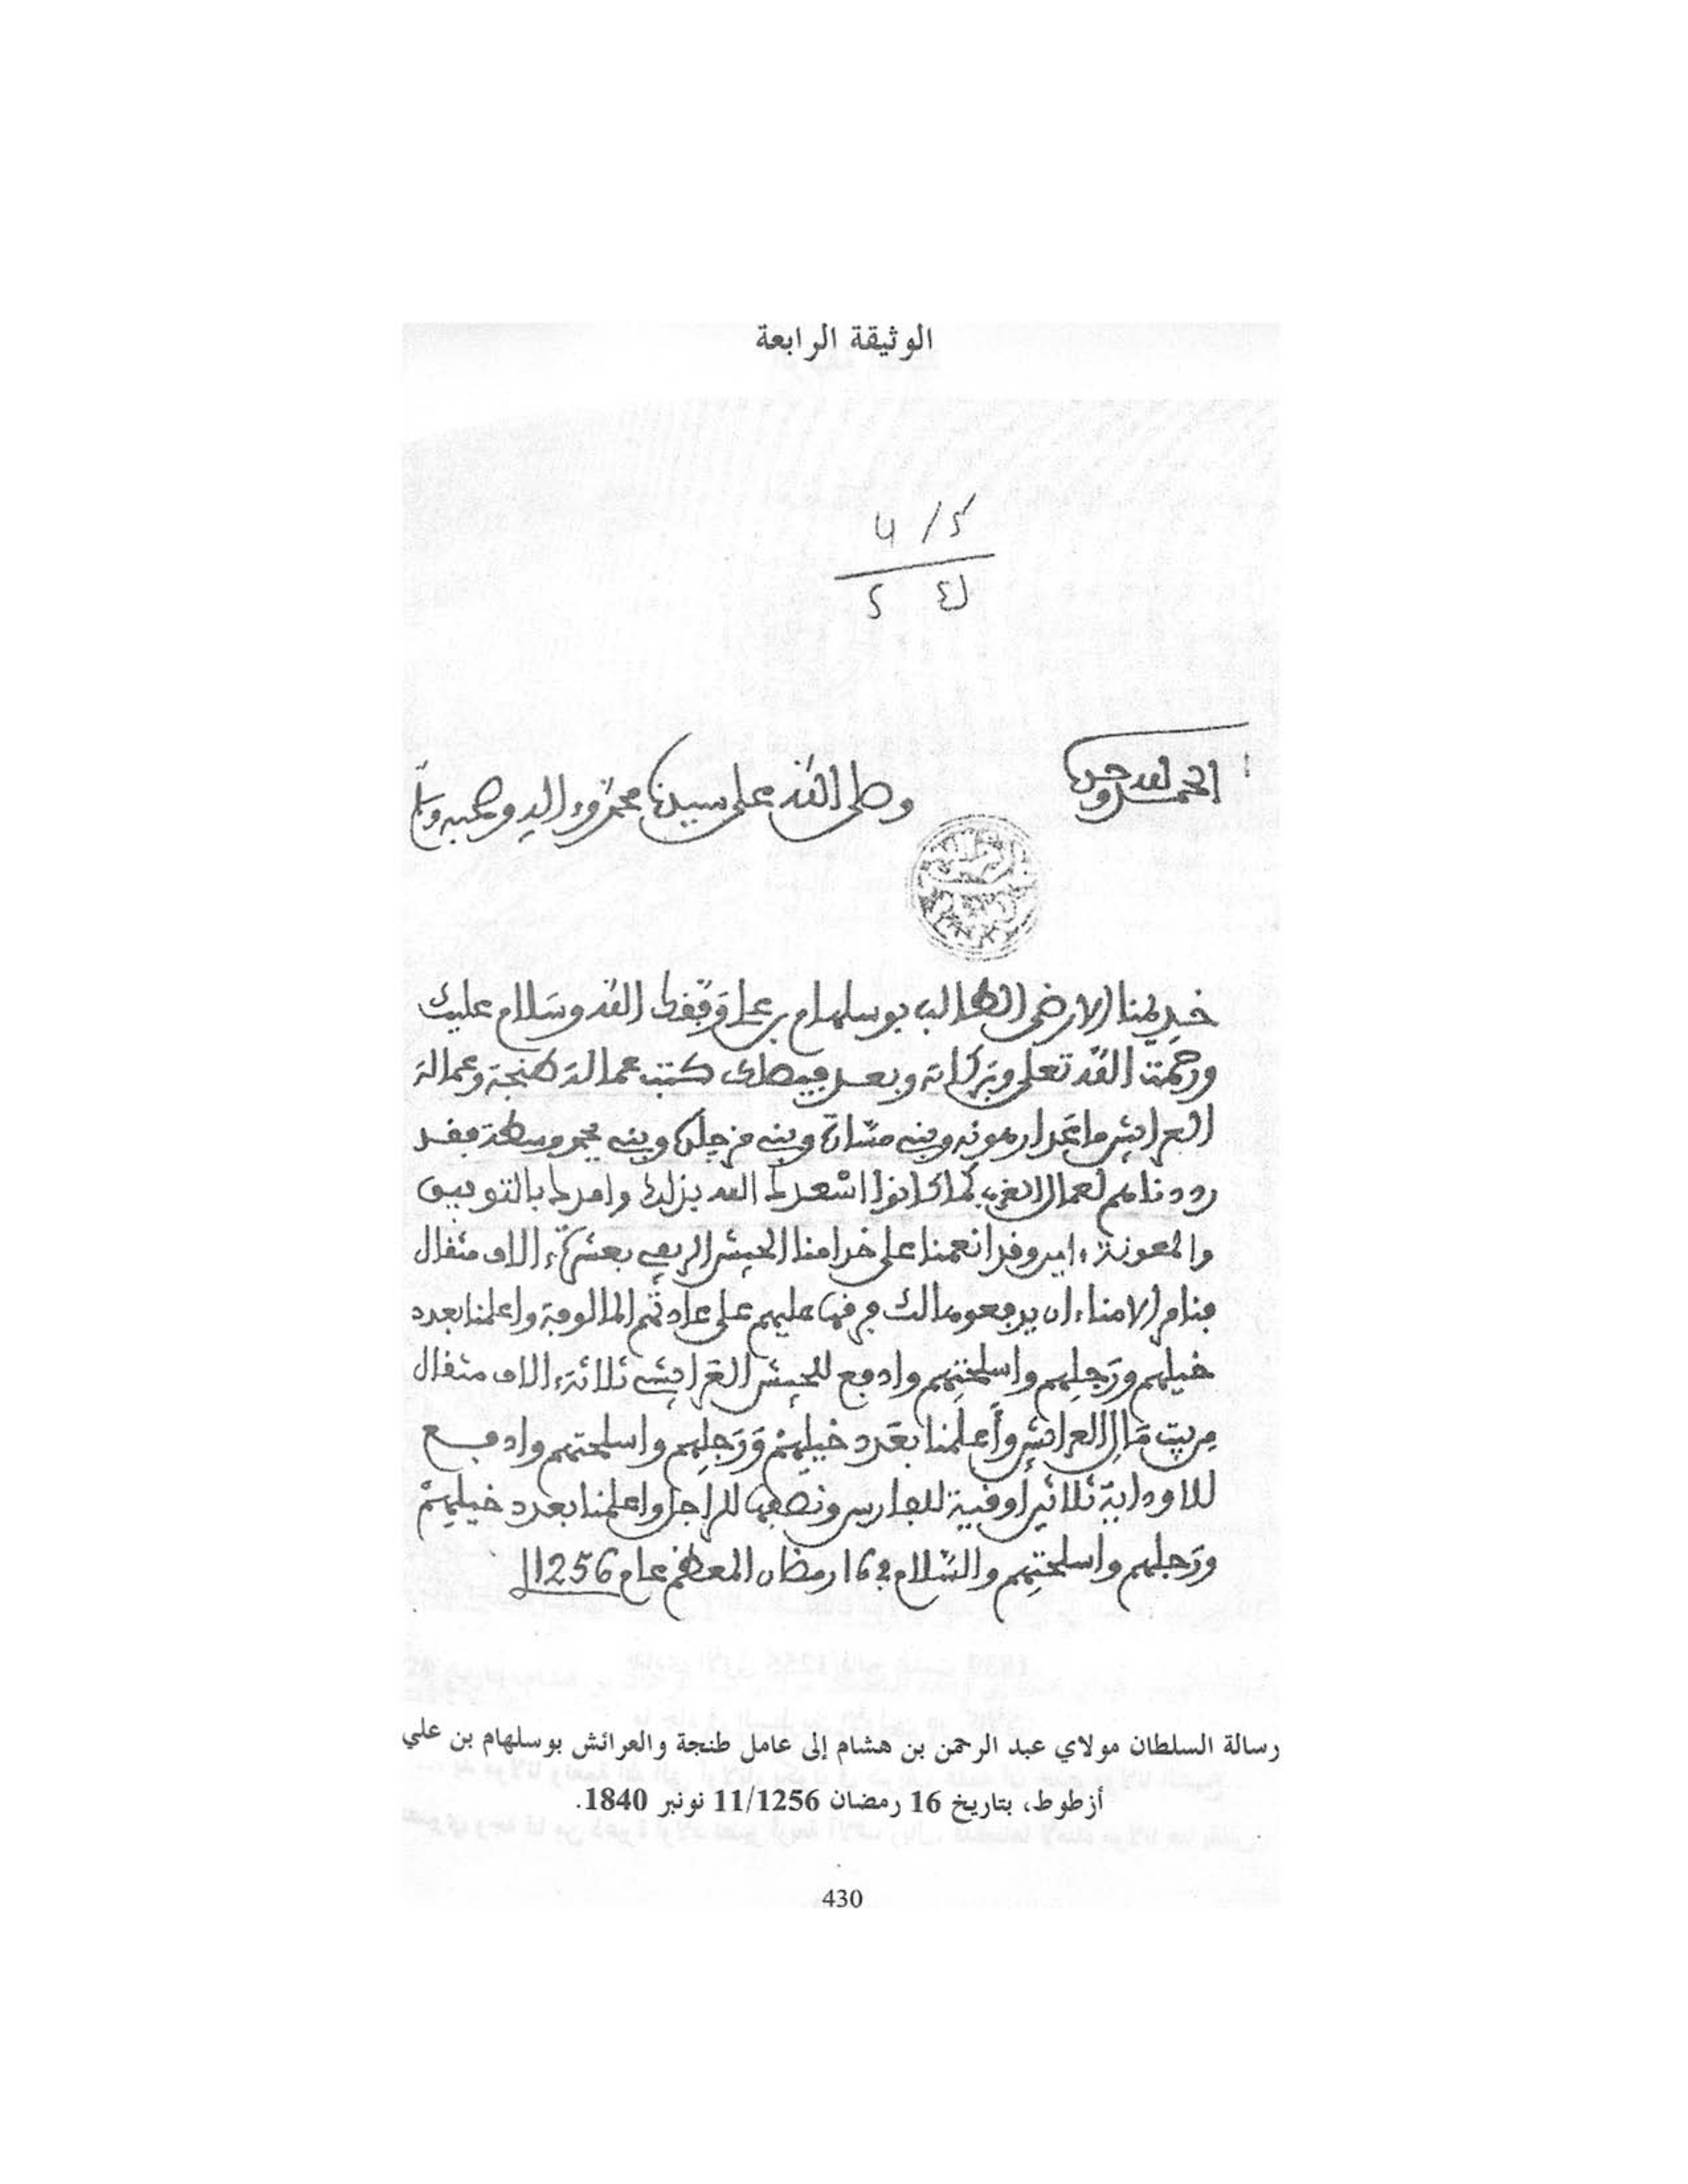 الوثيقة الرابعة
الحمد لله وحده
وصلى الله على سيدنا محمد وءاله وصحبه وسلم
خديمنا الارضى الطالب بوسلهام بن علي وفقك الله وسلام عليك
ورحمت الله تعلى وبركاته وبعد فيصلك كتب عمالة طنجة وعمالة
العرايش ما عدا رهونه وبنى مسارة وبنى مزجلدة وبنى يحمد وسطة فقد
رددناهم لعمال الغرب كما كانوا اسعدك الله بذلك وامدك بالتوفيق
والمعونة ءامين وقد انعمنا على خدامنا الجيش الريفي بعشرة ءالاف مثقال
فنامر الامناء ان يدفعوها لك فرقها عليهم على عادتهم المالوفة واعلمنا بعدد
خيلهم ورجلهم واسلحتهم وادفع للجيش العرايشي ثلاثة ءالاف مثقال
من بيت مال العرايش وأعلمنا بعدد خيلهم ورجلهم واسلحتهم وادفع
للاوداية ثلاثين أوقية للفارس ونصفها للراجل واعلمنا بعدد خيلهم
ورجلهم واسلحتهم والسلام في 16 رمضان المعظم عام 1256
رسالة السلطان مولاي عبد الرحمن بن هشام إلى عامل طنجة والعرائش بوسلهام بن علي
أزطوط، بتاريخ 16 رمضان 11/1256 نونبر 1840.
430